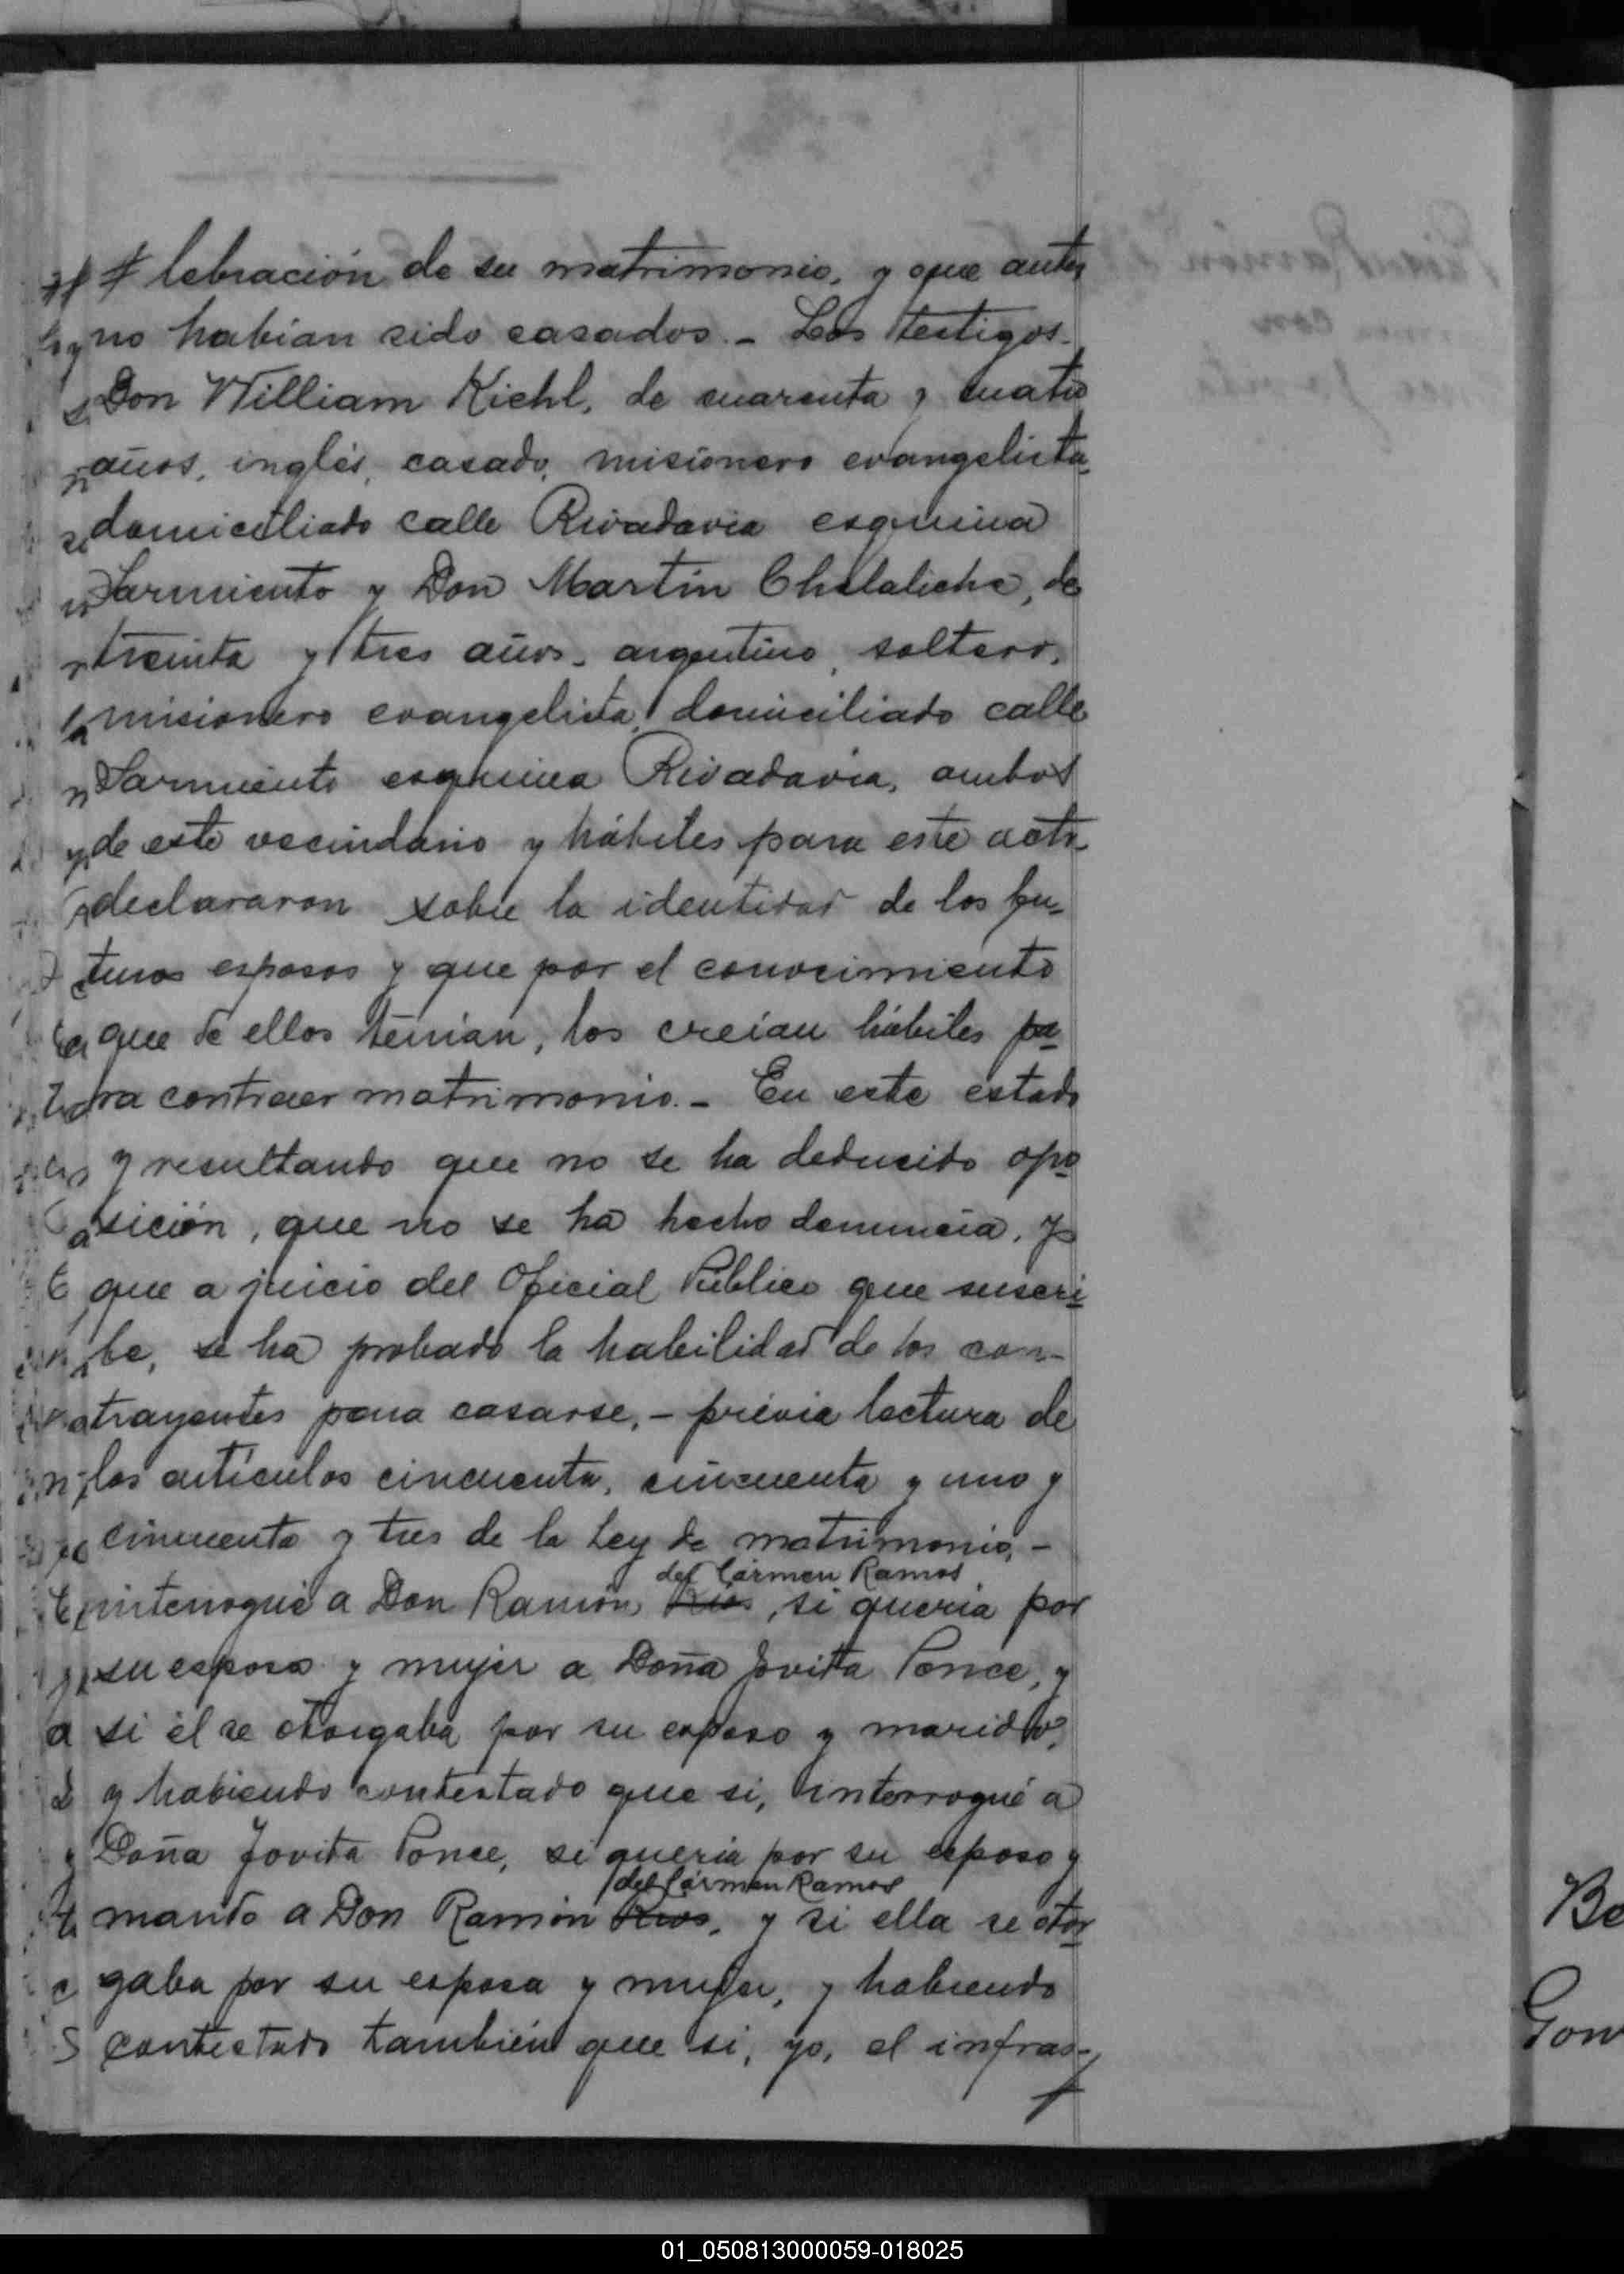 lebración de su matrimonio, y que antes
no habían sido casados. - Los testigos
Don William Kiehl, de cuarenta y cuatro
años, inglés, casado, misionero evangelista,
domiciliado calle Rivadavia esquina
Sarmiento y Don Martín Chelaliche, de
treinta y tres años, argentino, soltero,
misionero evangelista, domiciliado calle
Sarmiento esquina Rivadavia, ambos
de este vecindario y hábiles para este acto,
declararon sobre la identidad de los fu-
turos esposos y que por el conocimiento
que de ellos tenían, los creían hábiles pa-
ra contraer matrimonio. - En este estado
y resultando que no se ha deducido opo-
sición, que no se ha hecho denuncia, y
que a juicio del Oficial Público que suscri-
be, se ha probado la habilidad de los con-
trayentes para casarse, - previa lectura de
los artículos cincuenta, cincuenta y uno y
cincuenta y tres de la Ley de matrimonio, -
del Cármen Ramos
interrogué a Don Ramón Rios, si quería por
su esposa y mujer a Doña Jovita Ponce, y
si él se otorgaba por su esposo y marido,
y habiendo contestado que si, interrogué a
Doña Jovita Ponce, si quería por su esposo y
del Cármen Ramos
marido a Don Ramón Rios, y si ella se otor-
gaba por su esposa y mujer, y habiendo
contestado también que si, yo, el infras-
Be
Gon
01_050813000059-018025